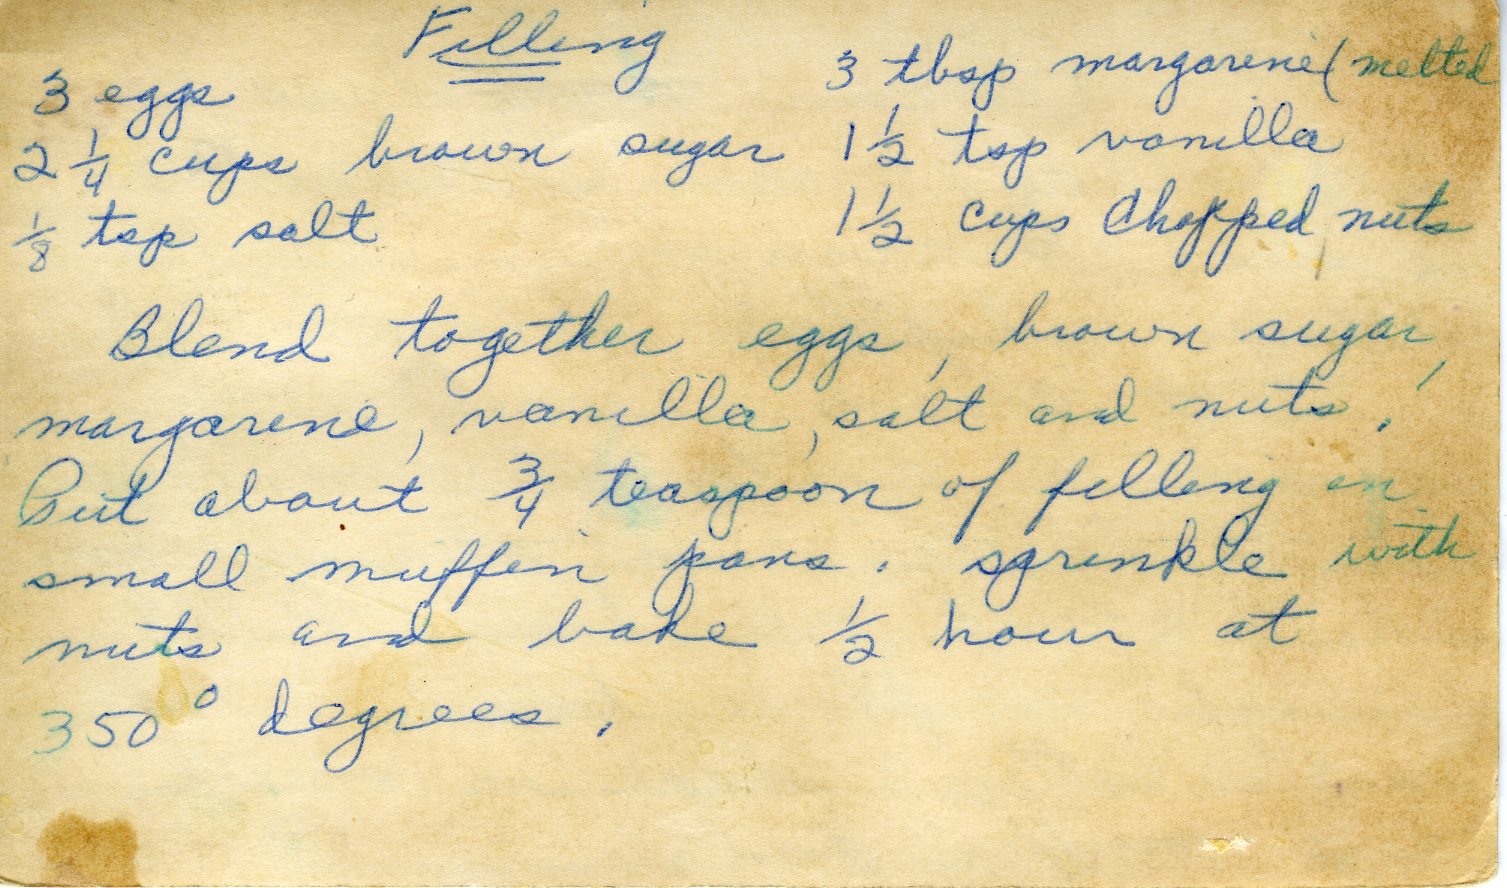 Filling
3 eggs
2 1/4 cups brown sugar
1/8 tsp salt
3 tbsp margarine (melted
1 1/2 tsp vanilla
1 1/2 cups chopped nuts
Blend together eggs, brown sugar,
margarine, vanilla, salt and nuts.
Put about 3/4 teaspoon of filling in
small muffin pans. sprinkle with
nuts and bake 1/2 hour at
350° degrees.